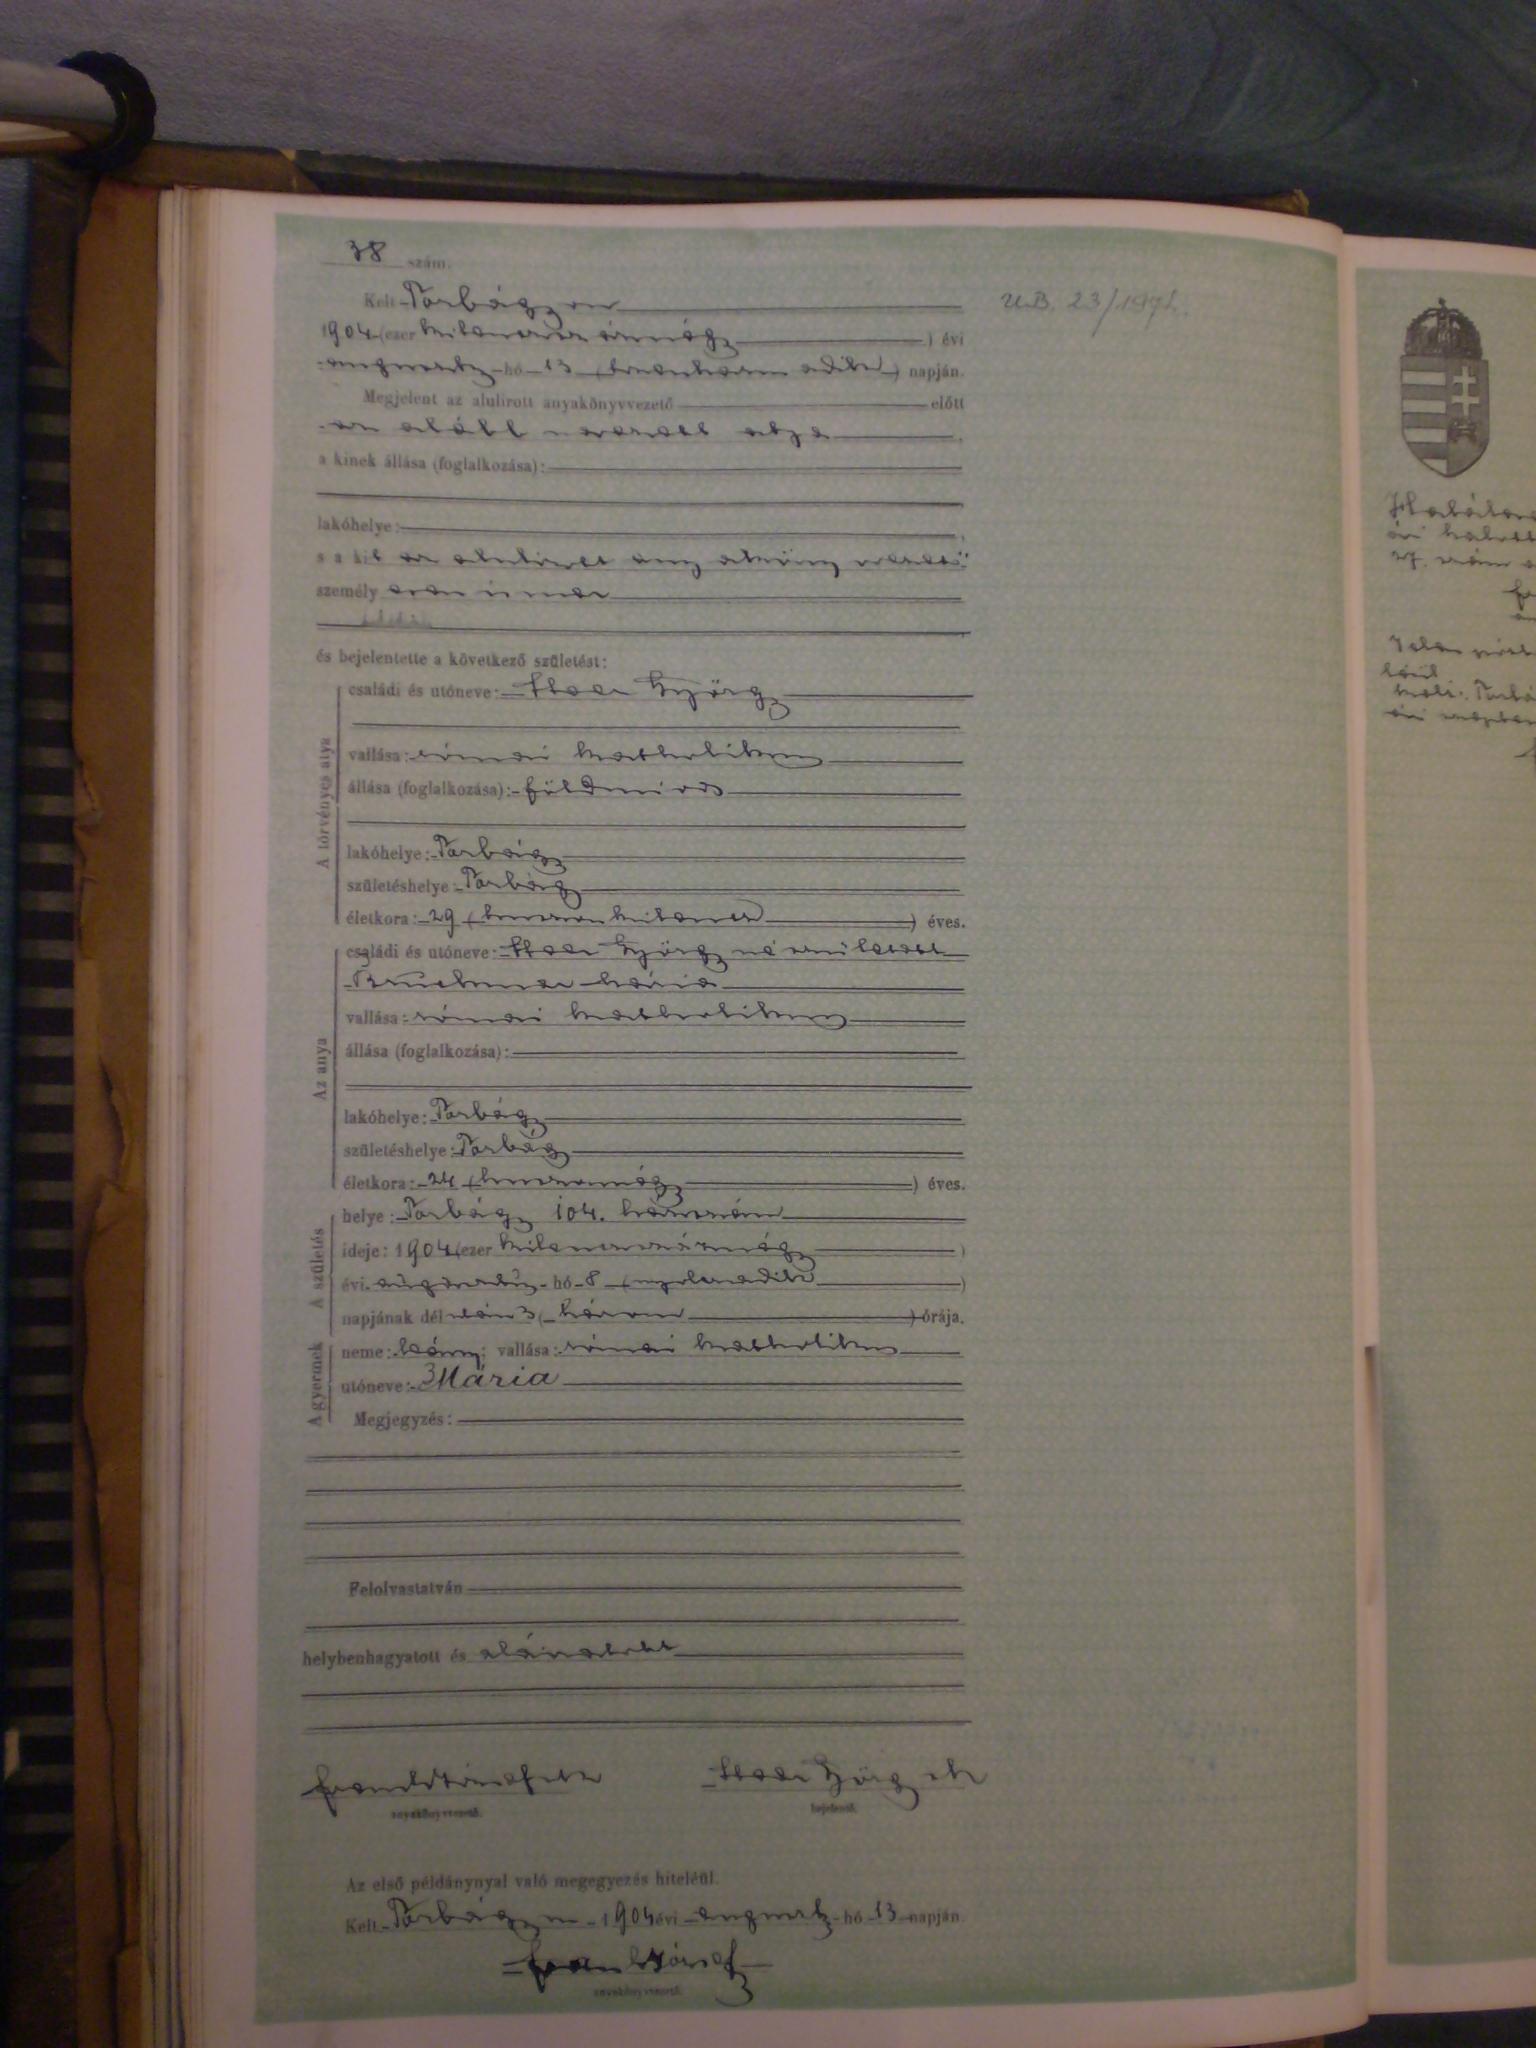 38 szám.
Kelt Torbágyon
U.B. 23/197
1904 (ezer kilenczszáznégy) évi
augusztus hó 13 (tizenharmadik) napján.
Megjelent az alulirott anyakönyvvezető előtt
az alább nevezett atya
a kinek állása (foglalkozása):
lakóhelye:
s a kit az alulirott anyakönyvvezető
személyesen ismer
és bejelentette a következő születést:
A törvényes atya
családi és utóneve: György
vallása: római katholikus
állása (foglalkozása): földmives
lakóhelye: Torbágy
születéshelye: Torbágy
életkora: 29 (huszonkilencz) éves.
Az anya
családi és utóneve: György né született
Mária
vallása: római katholikus
állása (foglalkozása):
lakóhelye: Torbágy
születéshelye: Torbágy
életkora: 24 (huszonnégy) éves.
A születés
helye: Torbágy 104. házszám
ideje: 1904 (ezer kilenczszáznégy)
évi augusztus hó 8 (nyolczadik)
napjának dél után 3 (három) órája.
A gyermek
neme: leány; vallása: római katholikus
utóneve: Mária
Megjegyzés:
Felolvastatván
helybenhagyatott és aláiratott
György
anyakönyvvezető.
bejelentő.
Az első példánynyal való megegyezés hiteléül.
Kelt Torbágyon 1904 évi augusztus hó 13 napján.
József
anyakönyvvezető.